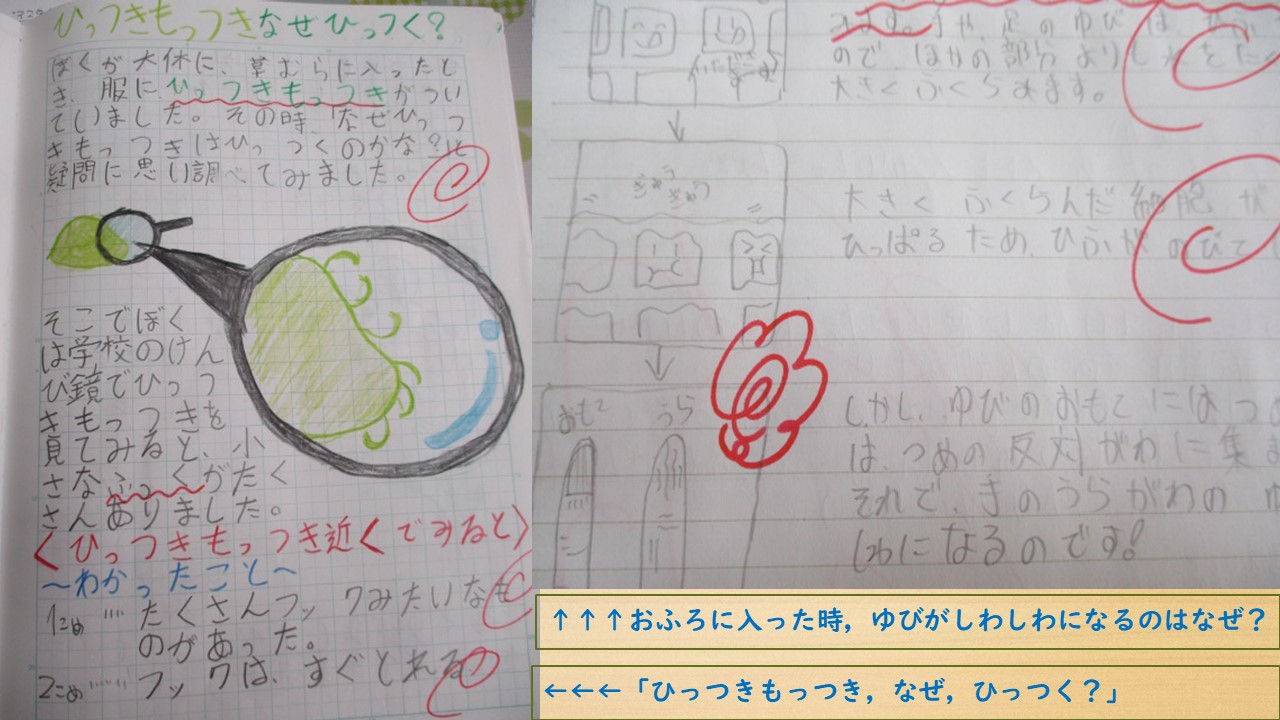 ひっつきもっつきなぜひっつく?
ぼくが大休に、草むらに入ったと
き、服にひっつきもっつきがつい
ていました。その時、「なぜひっつ
きもっつきはひっつくのかな?」と
疑問に思い調べてみました。
そこでぼく
は学校のけん
び鏡でひっつ
きもっつきを
見てみると、小
さなふっくがたく
さんありました。
〈ひっつきもっつき近くでみると〉
~わかったこと~
1こめ…たくさんフックみたいなも
のがあった。
2こめ……フックは、すぐとれる
みます。手や、足のゆびは、
ので、ほかの部分より
大きくふくらみます。
ぎゅう
ぎゅう
大きくふくらんだ細胞が
ひっぱるため、ひふがのびて
おもて うら
しかし、ゆびのおもてには
は、つめの反対がわに集
それで、手のうらがわの
しわになるのです!
↑↑↑おふろに入った時，ゆびがしわしわになるのはなぜ？
←←←「ひっつきもっつき，なぜ，ひっつく？」